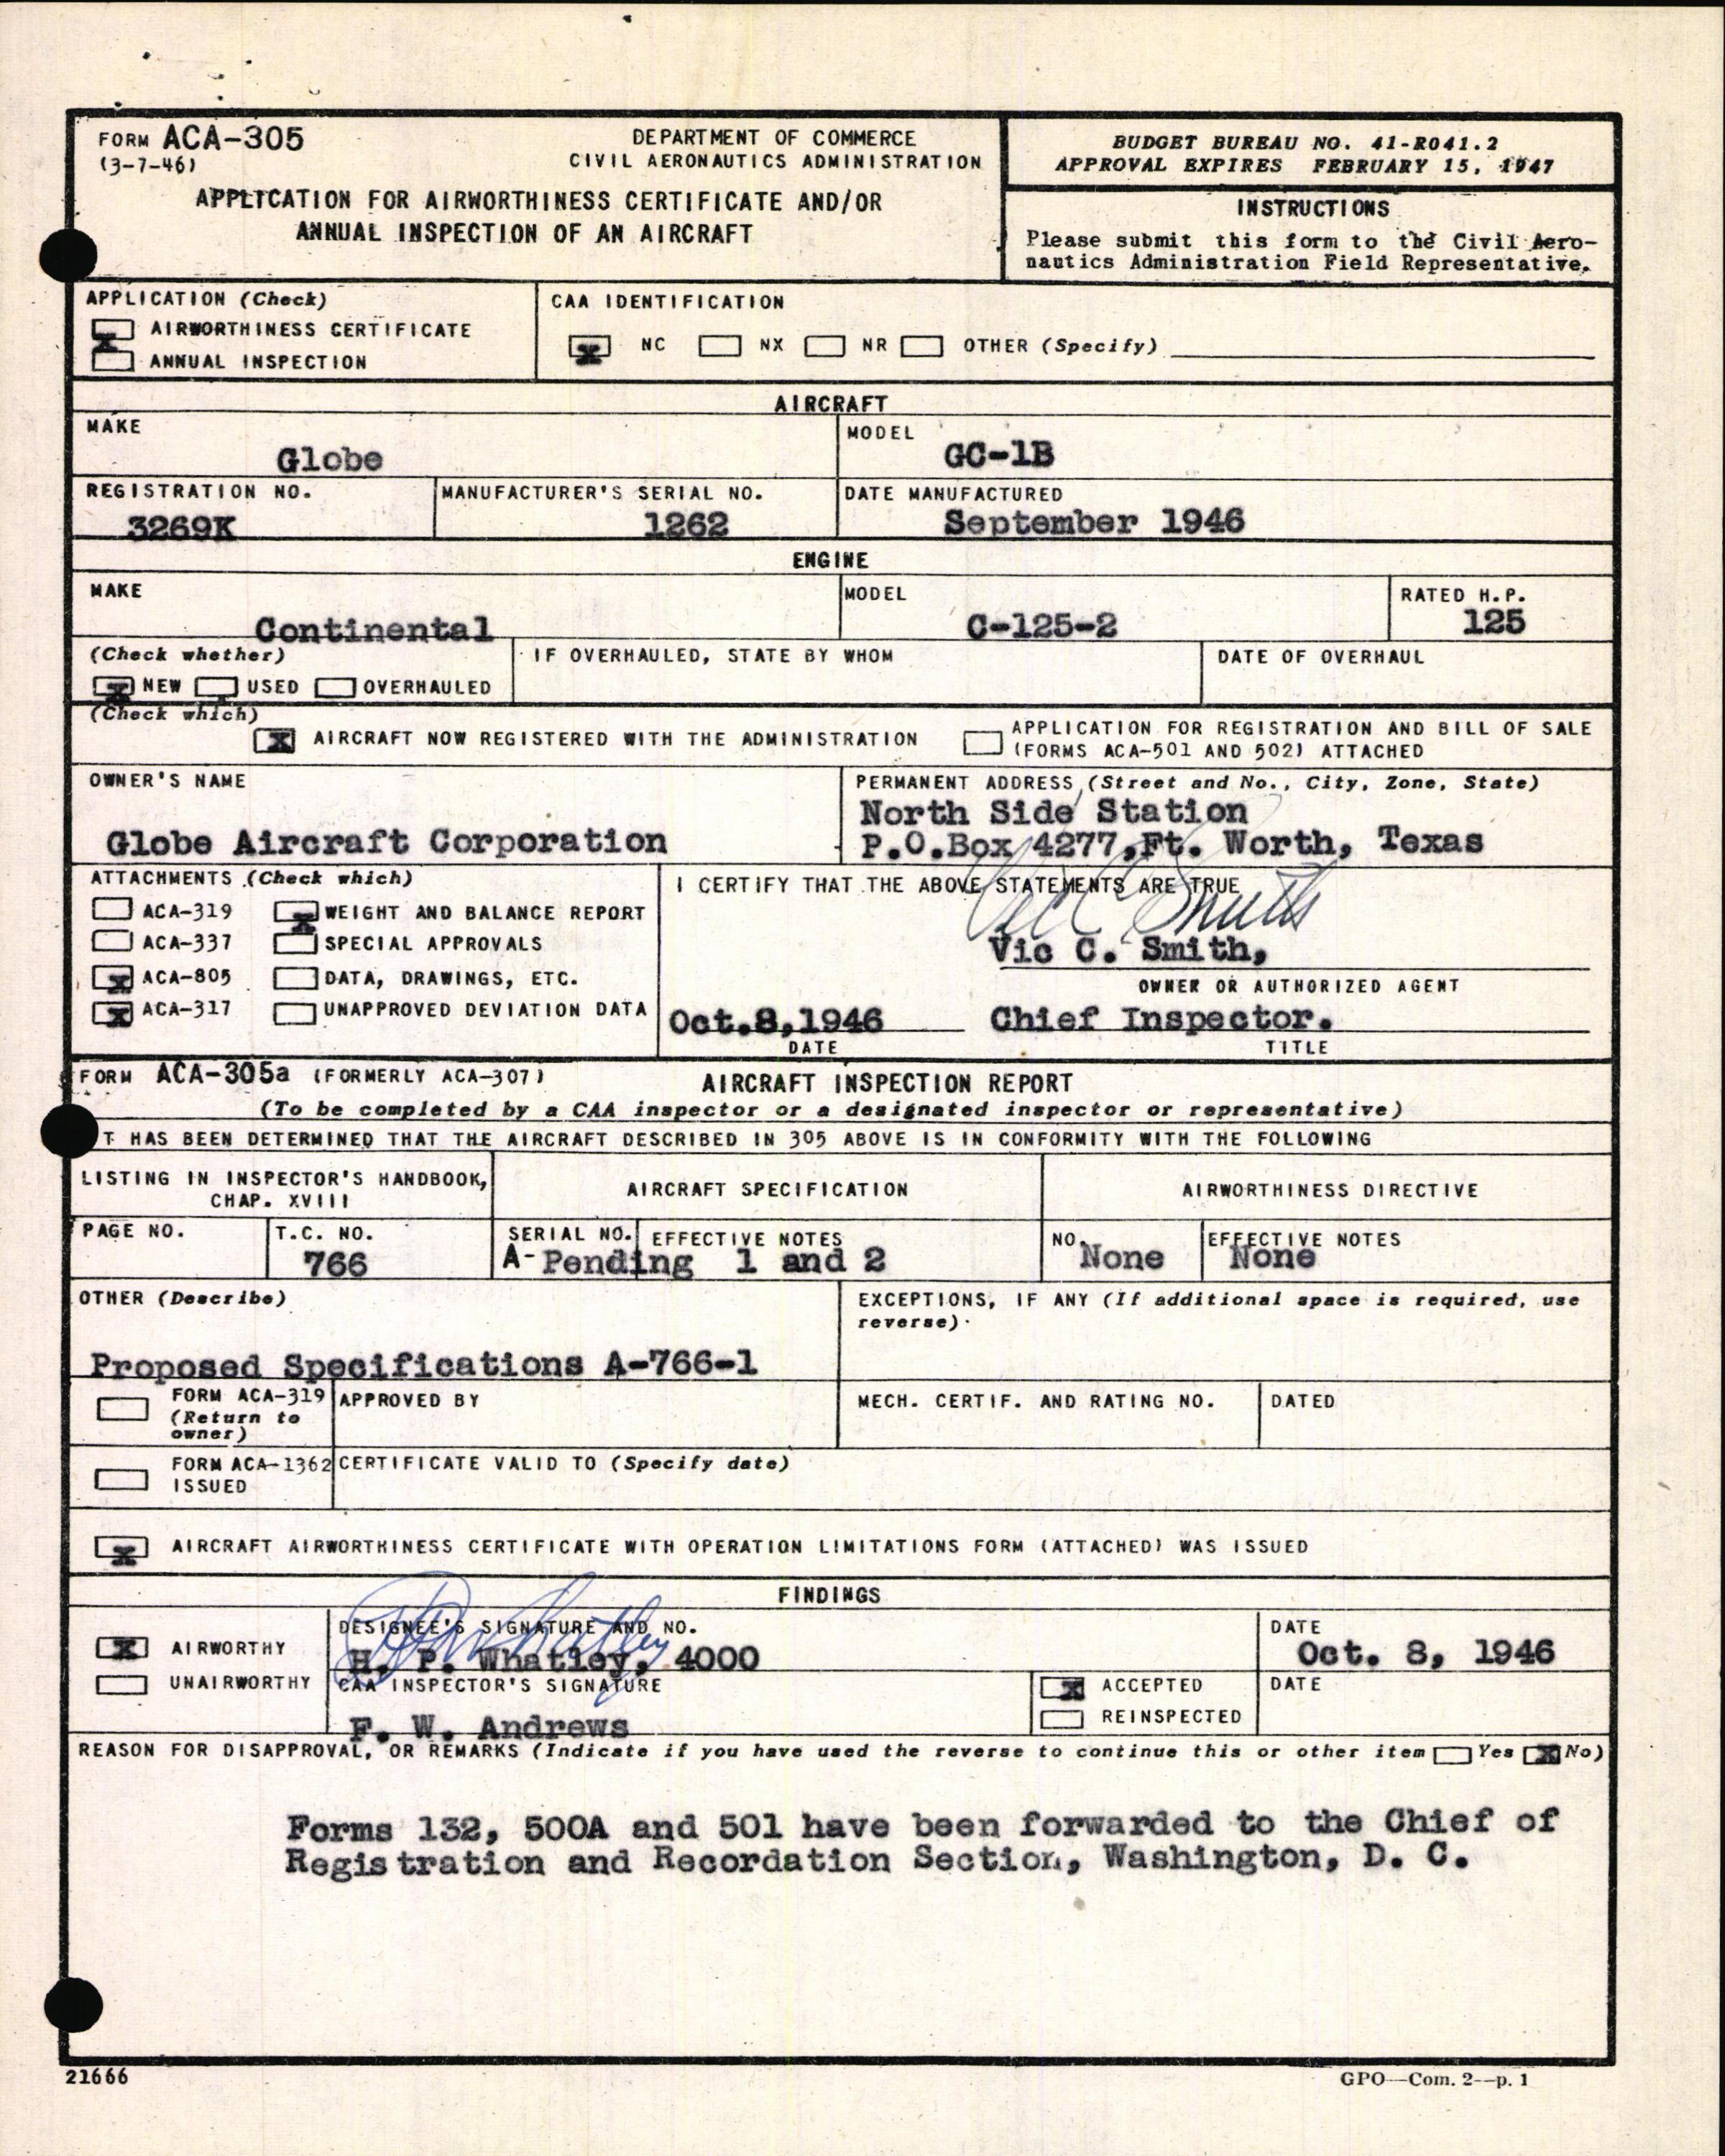 FORM ACA-305
(3-7-46)
DEPARTMENT OF COMMERCE
CIVIL AERONAUTICS ADMINISTRATION
APPLICATION FOR AIRWORTHINESS CERTIFICATE AND/OR
ANNUAL INSPECTION OF AN AIRCRAFT
BUDGET BUREAU NO. 41-R041.2
APPROVAL EXPIRES FEBRUARY 15, 1947
INSTRUCTIONS
Please submit this form to the Civil Aero-
nautics Administration Field Representative.
APPLICATION (Check)
X AIRWORTHINESS CERTIFICATE
ANNUAL INSPECTION
CAA IDENTIFICATION
X NC NX NR OTHER (Specify)
AIRCRAFT
MAKE
Globe
MODEL
GC-1B
REGISTRATION NO.
3269K
MANUFACTURER'S SERIAL NO.
1262
DATE MANUFACTURED
September 1946
ENGINE
MAKE
Continental
MODEL
C-125-2
RATED H.P.
125
(Check whether)
X NEW USED OVERHAULED
IF OVERHAULED, STATE BY WHOM
DATE OF OVERHAUL
(Check which)
X AIRCRAFT NOW REGISTERED WITH THE ADMINISTRATION
APPLICATION FOR REGISTRATION AND BILL OF SALE
(FORMS ACA-501 AND 502) ATTACHED
OWNER'S NAME
Globe Aircraft Corporation
PERMANENT ADDRESS (Street and No., City, Zone, State)
North Side Station
P.O.Box 4277,Ft. Worth, Texas
ATTACHMENTS (Check which)
ACA-319 X WEIGHT AND BALANCE REPORT
ACA-337 SPECIAL APPROVALS
X ACA-805 DATA, DRAWINGS, ETC.
X ACA-317 UNAPPROVED DEVIATION DATA
I CERTIFY THAT THE ABOVE STATEMENTS ARE TRUE
Vic C Smith
Vic C. Smith,
OWNER OR AUTHORIZED AGENT
Oct.8,1946 Chief Inspector.
DATE TITLE
FORM ACA-305a (FORMERLY ACA-307) AIRCRAFT INSPECTION REPORT
(To be completed by a CAA inspector or a designated inspector or representative)
T HAS BEEN DETERMINED THAT THE AIRCRAFT DESCRIBED IN 305 ABOVE IS IN CONFORMITY WITH THE FOLLOWING
LISTING IN INSPECTOR'S HANDBOOK,
CHAP. XVIII
AIRCRAFT SPECIFICATION
AIRWORTHINESS DIRECTIVE
PAGE NO.
T.C. NO.
766
SERIAL NO. EFFECTIVE NOTES
A- Pending 1 and 2
NO.
None
EFFECTIVE NOTES
None
OTHER (Describe)
Proposed Specifications A-766-1
EXCEPTIONS, IF ANY (If additional space is required, use
reverse).
FORM ACA-319
(Return to
owner)
APPROVED BY
MECH. CERTIF. AND RATING NO.
DATED
FORM ACA-1362
ISSUED
CERTIFICATE VALID TO (Specify date)
X AIRCRAFT AIRWORTHINESS CERTIFICATE WITH OPERATION LIMITATIONS FORM (ATTACHED) WAS ISSUED
FINDINGS
X AIRWORTHY
UNAIRWORTHY
DESIGNEE'S SIGNATURE AND NO.
H. P. Whatley, 4000
DATE
Oct. 8, 1946
CAA INSPECTOR'S SIGNATURE
F. W. Andrews
X ACCEPTED
REINSPECTED
DATE
REASON FOR DISAPPROVAL, OR REMARKS (Indicate if you have used the reverse to continue this or other item Yes X No)
Forms 132, 500A and 501 have been forwarded to the Chief of
Registration and Recordation Section, Washington, D. C.
21666
GPO—Com. 2--p. 1